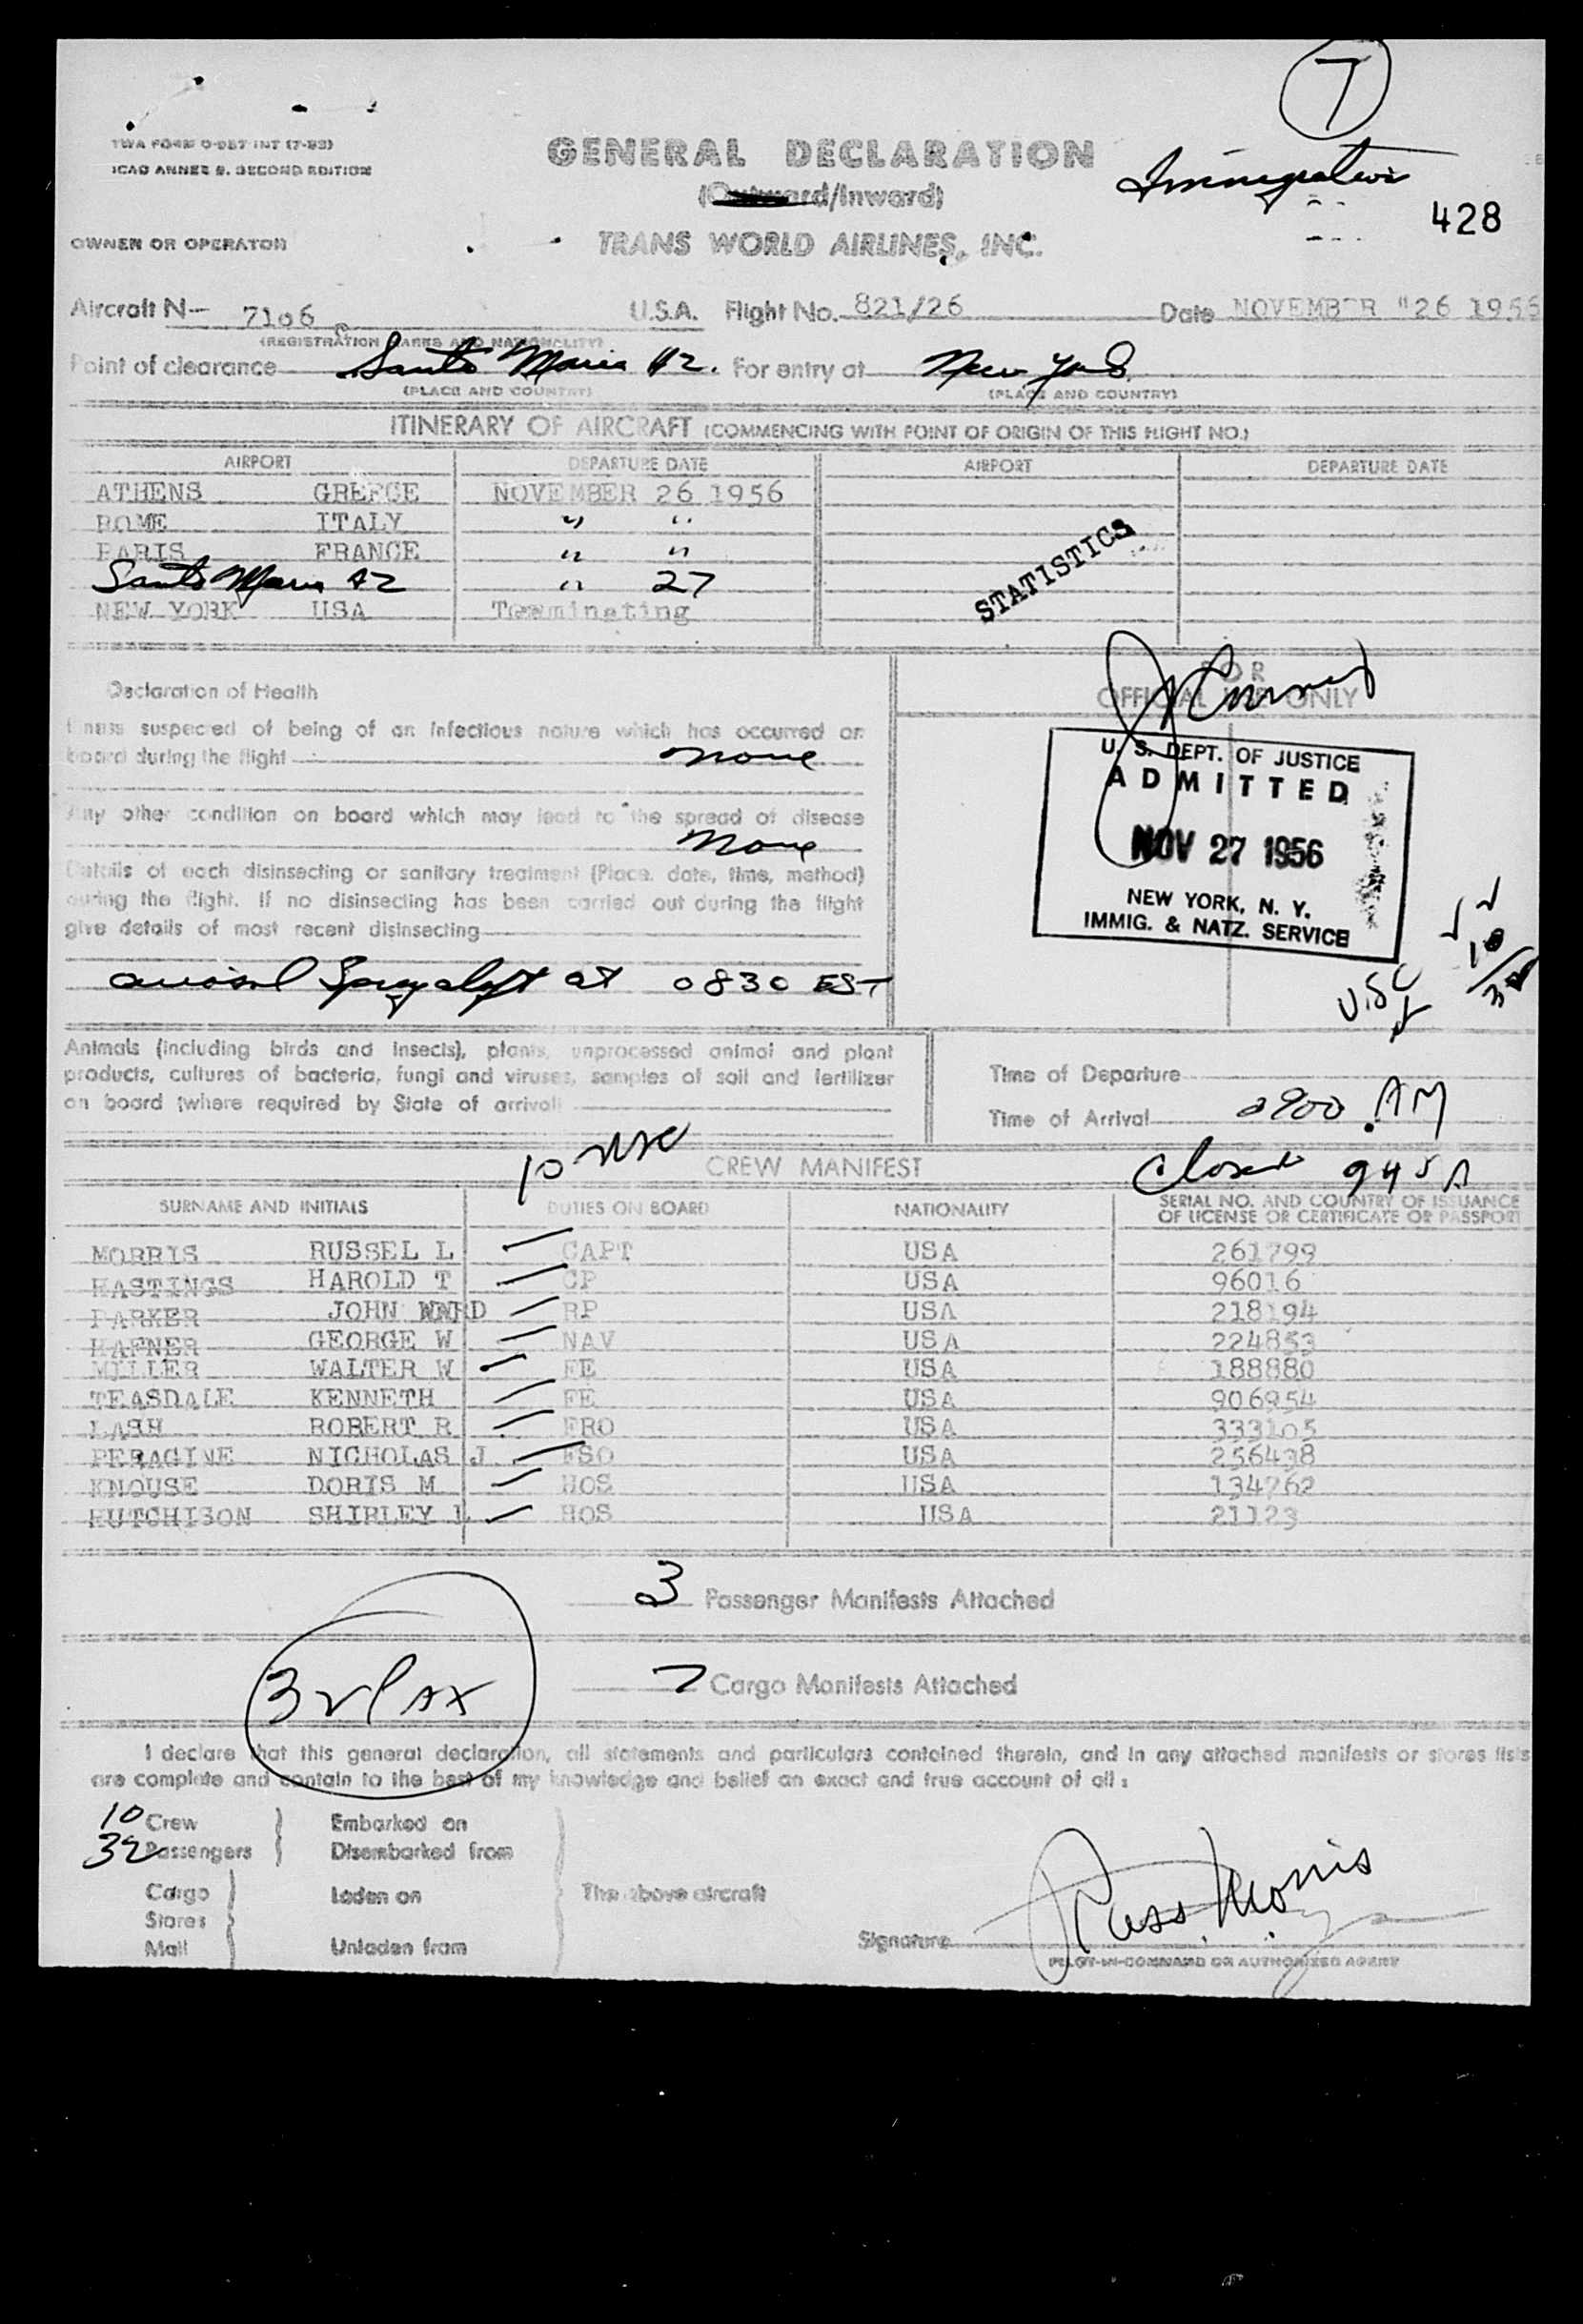 T
TWA FORM O-957 INT (7-53)
ICAO ANNEX 9. SECOND EDITION
GENERAL DECLARATION
Immigration
(Outward/Inward)
428
OWNER OR OPERATOR
TRANS WORLD AIRLINES, INC.
Aircraft N- 7106 U.S.A. Flight No. 821/26 Date NOVEMBER 26 1956
(REGISTRATION MARKS AND NATIONALITY)
Point of clearance Santa Maria AZ. For entry at New York
(PLACE AND COUNTRY) (PLACE AND COUNTRY)
ITINERARY OF AIRCRAFT (COMMENCING WITH POINT OF ORIGIN OF THIS FLIGHT NO.)
AIRPORT DEPARTURE DATE AIRPORT DEPARTURE DATE
ATHENS GREECE NOVEMBER 26 1956
ROME ITALY " "
PARIS FRANCE " "
Santa Maria AZ " 27
NEW YORK USA Terminating
STATISTICS
Declaration of Health
FOR
OFFICIAL USE ONLY
Illness suspected of being of an infectious nature which has occurred on
board during the flight none
Any other condition on board which may lead to the spread of disease
None
Details of each disinsecting or sanitary treatment (Place, date, time, method)
during the flight. If no disinsecting has been carried out during the flight
give details of most recent disinsecting
aerosol Spray aloft at 0830 EST
U. S. DEPT. OF JUSTICE
ADMITTED
NOV 27 1956
NEW YORK, N. Y.
IMMIG. & NATZ. SERVICE
USC
Animals (including birds and insects), plants, unprocessed animal and plant
products, cultures of bacteria, fungi and viruses, samples of soil and fertilizer
on board (where required by State of arrival)
Time of Departure
Time of Arrival 0900 AM
10 USC
CREW MANIFEST
Closed 945A
SURNAME AND INITIALS DUTIES ON BOARD NATIONALITY SERIAL NO. AND COUNTRY OF ISSUANCE
OF LICENSE OR CERTIFICATE OR PASSPORT
MORRIS RUSSEL L CAPT USA 261799
HASTINGS HAROLD T CP USA 96016
PARKER JOHN RP USA 218194
HAFNER GEORGE W NAV USA 224853
MILLER WALTER W FE USA 188880
TEASDALE KENNETH FE USA 906954
LASH ROBERT R FRO USA 333105
PERAGINE NICHOLAS J FSO USA 256438
KNOUSE DORIS M HOS USA 134762
HUTCHISON SHIRLEY L HOS USA 21123
3 Passenger Manifests Attached
32 Pax
7 Cargo Manifests Attached
I declare that this general declaration, all statements and particulars contained therein, and in any attached manifests or stores lists
are complete and contain to the best of my knowledge and belief an exact and true account of all:
10 Crew Embarked on
32 Passengers Disembarked from
Cargo Laden on The above aircraft
Stores
Mail Unladen from
Signature Russ Morris
PILOT-IN-COMMAND OR AUTHORIZED AGENT